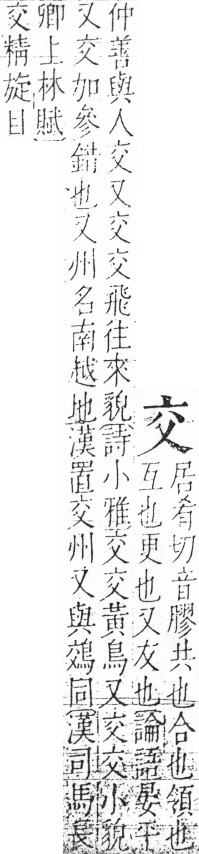 交
居肴切音膠共也合也領也
互也更也又友也論語晏平
仲善與人交又交交飛往來貌詩小雅交交黃鳥又交交小貌
又交加參錯也又州名南越地漢置交州又與鵁同漢司馬長
卿上林賦
交精旋目